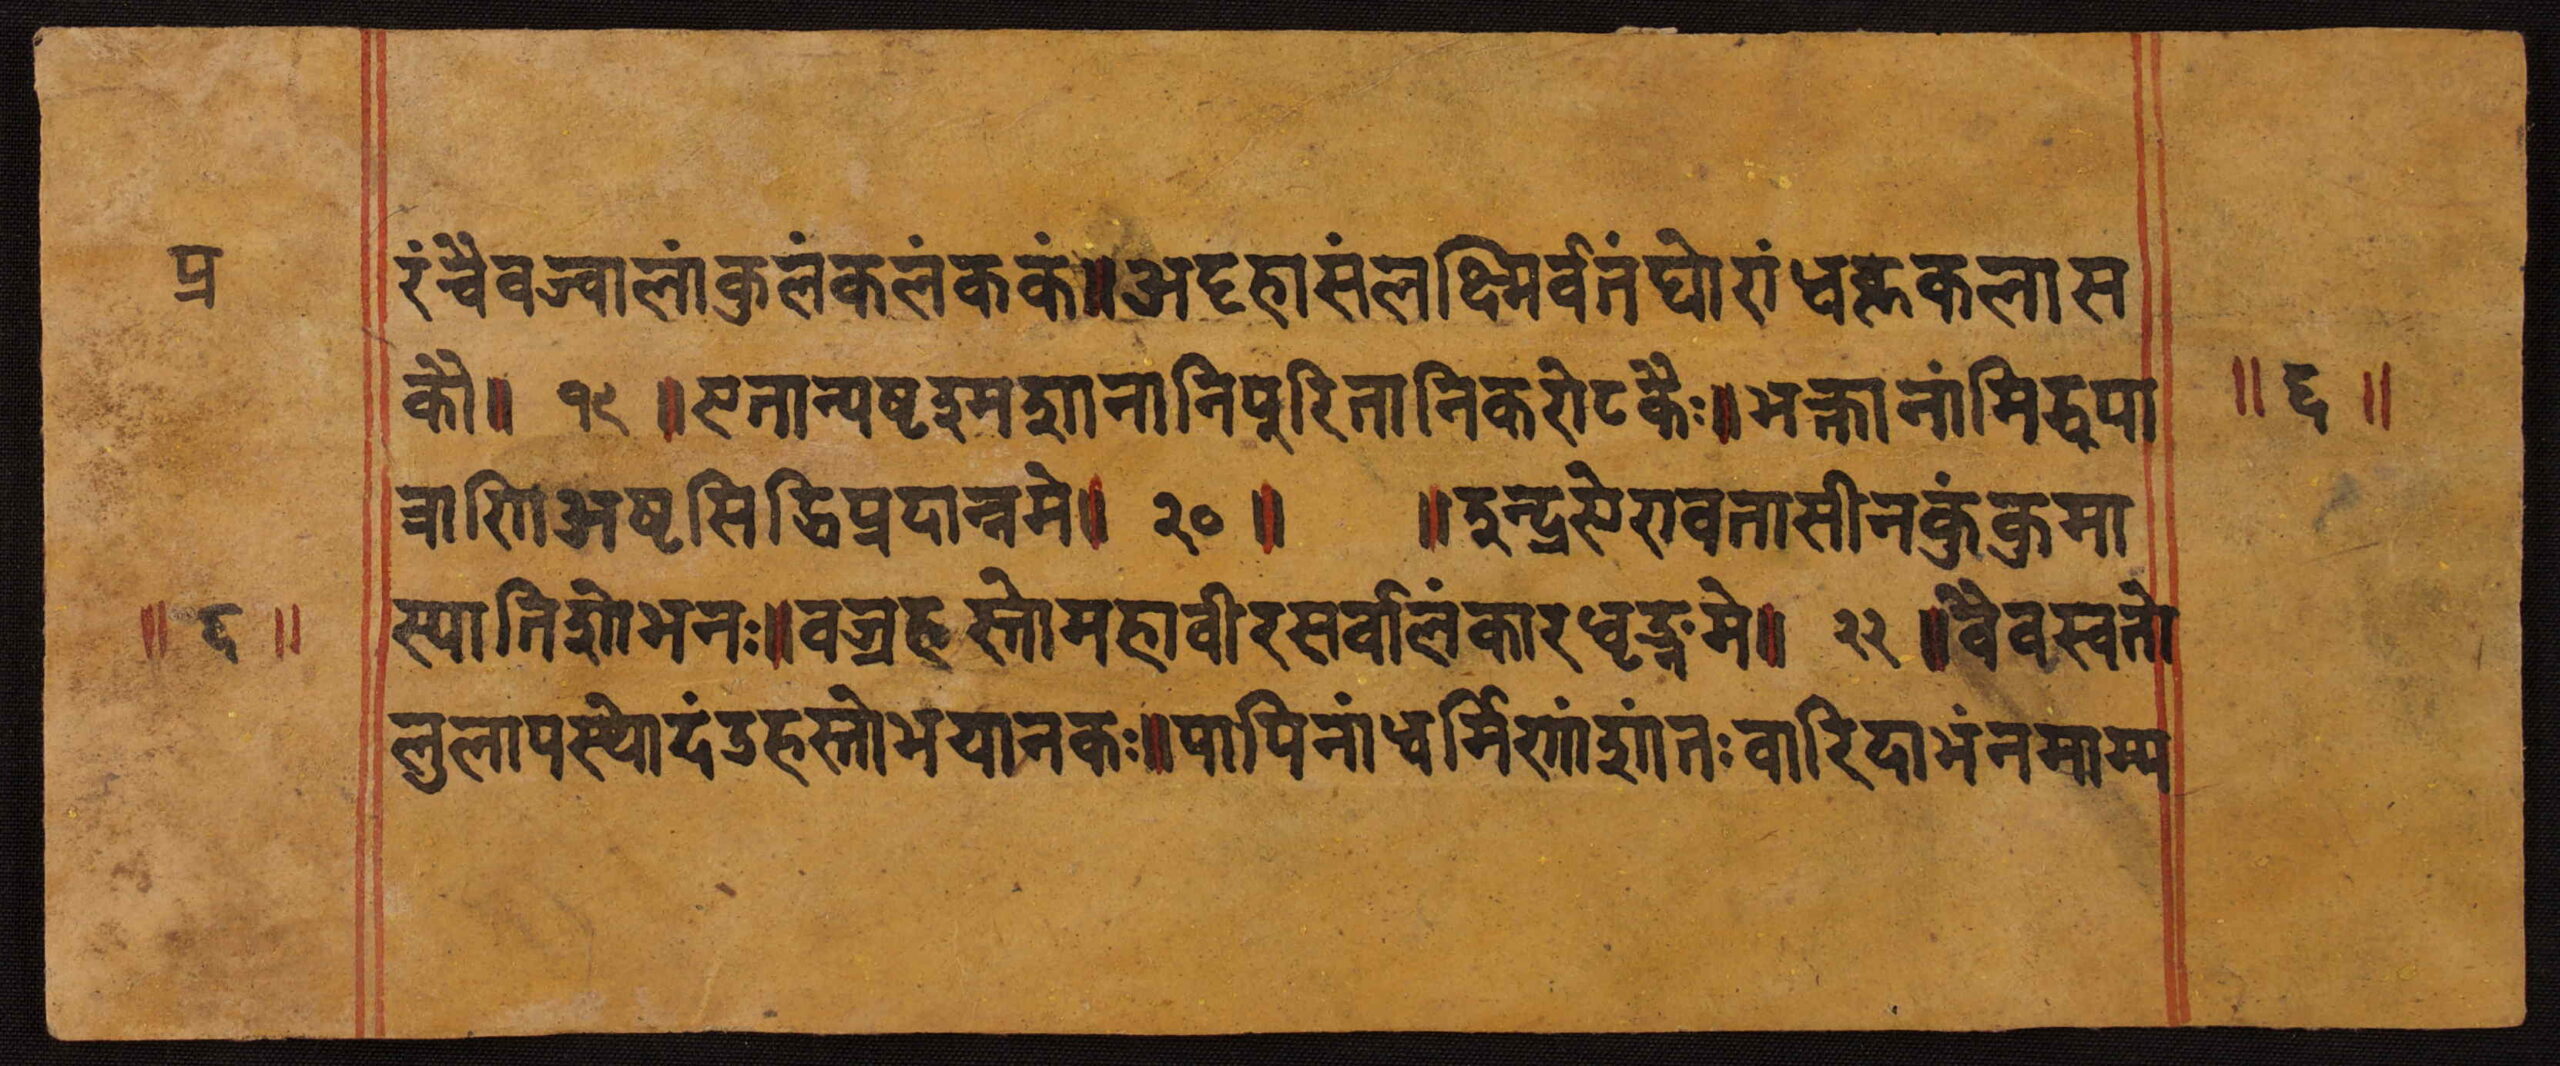 प्र
रंन्चैवज्वालांकुलंकलंककं॥अट्टहासंलक्ष्मिर्वनंघोरांध्वक्तकलास
कौ॥ १९ ॥एतान्यष्टश्मशानानिपुरितानिकरोटकैः॥भक्तानांमिद्धपा
॥ ६ ॥
त्राणिअष्टसिद्धिप्रदान्नमे॥ २० ॥ ॥इन्द्रऐरावतासीनकुंकुमा
॥ ६ ॥
स्यातिशोभनः॥वज्रहस्तोमहावीरसर्वालंकारधृङ्नमे॥ २२ ॥वैवस्वतो
लुलापस्थोदंडहस्तोभयानकः॥पापिनांधर्मिणांशांतःवारिदाभंनमाम्य